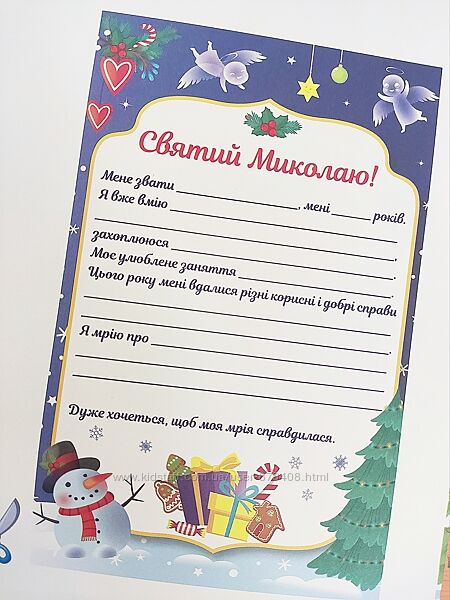 Святий Миколаю!
Мене звати ____________, мені _____ років.
Я вже вмію ____________
____________,
захоплююся ____________.
Моє улюблене заняття ____________.
Цього року мені вдалися різні корисні і добрі справи
____________
____________.
Я мрію про ____________
____________
____________.
Дуже хочеться, щоб моя мрія справдилася.